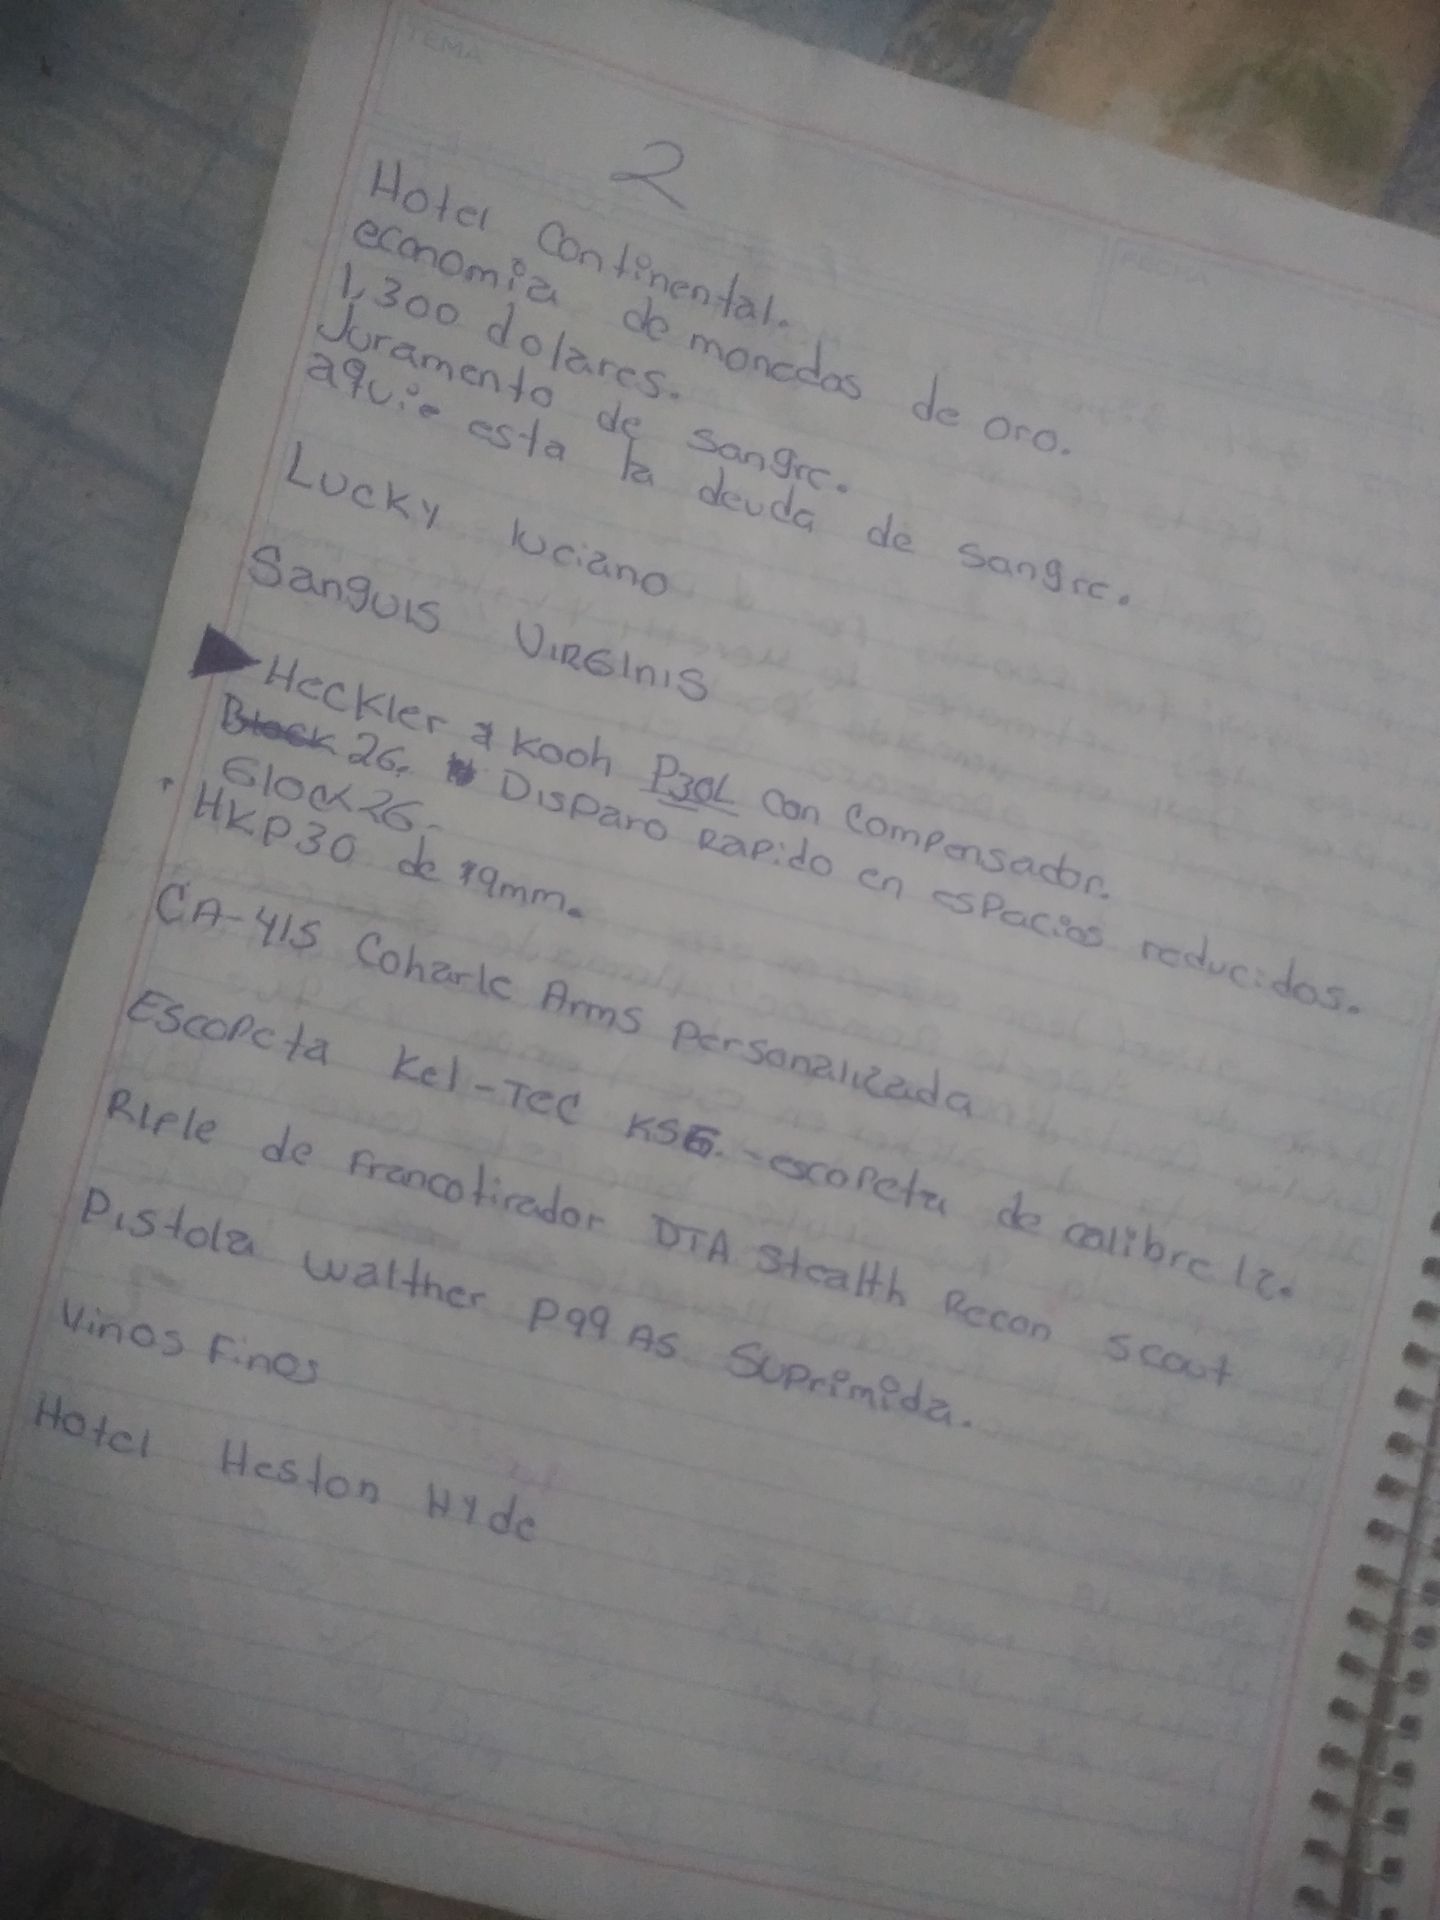 TEMA
FECHA
2
Hotel Continental.
economia de monedas de oro.
1,300 dolares.
Juramento de sangre.
aquie esta la deuda de sangre.
Lucky luciano
Sanguis Virginis
Heckler & Kooh P30L con compensador.
Block 26. Disparo rapido en espacios reducidos.
Glock 26.
HKP30 de 9mm.
CA-415 Coharle Arms personalizada
Escopeta Kel-Tec KSG. - escopeta de calibre 12.
Rifle de francotirador DTA Stealth Recon Scout
Pistola Walther P99 AS Suprimida.
Vinos Finos
Hotel Heston Hyde